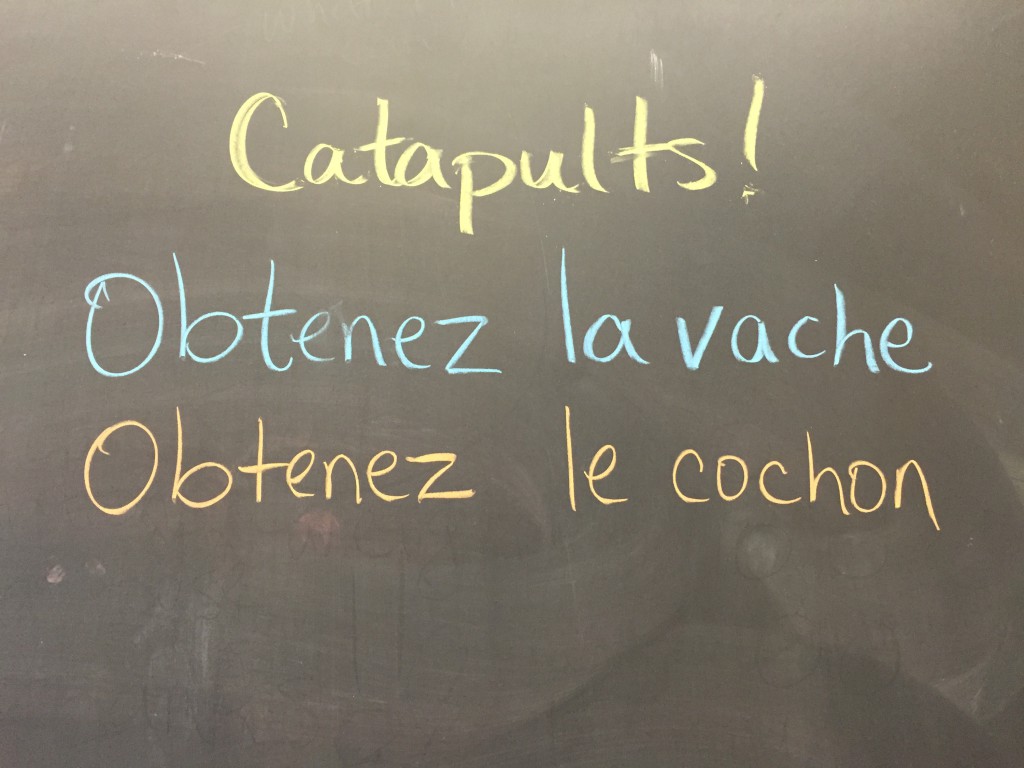 Catapults!
Obtenez la vache
Obtenez le cochon